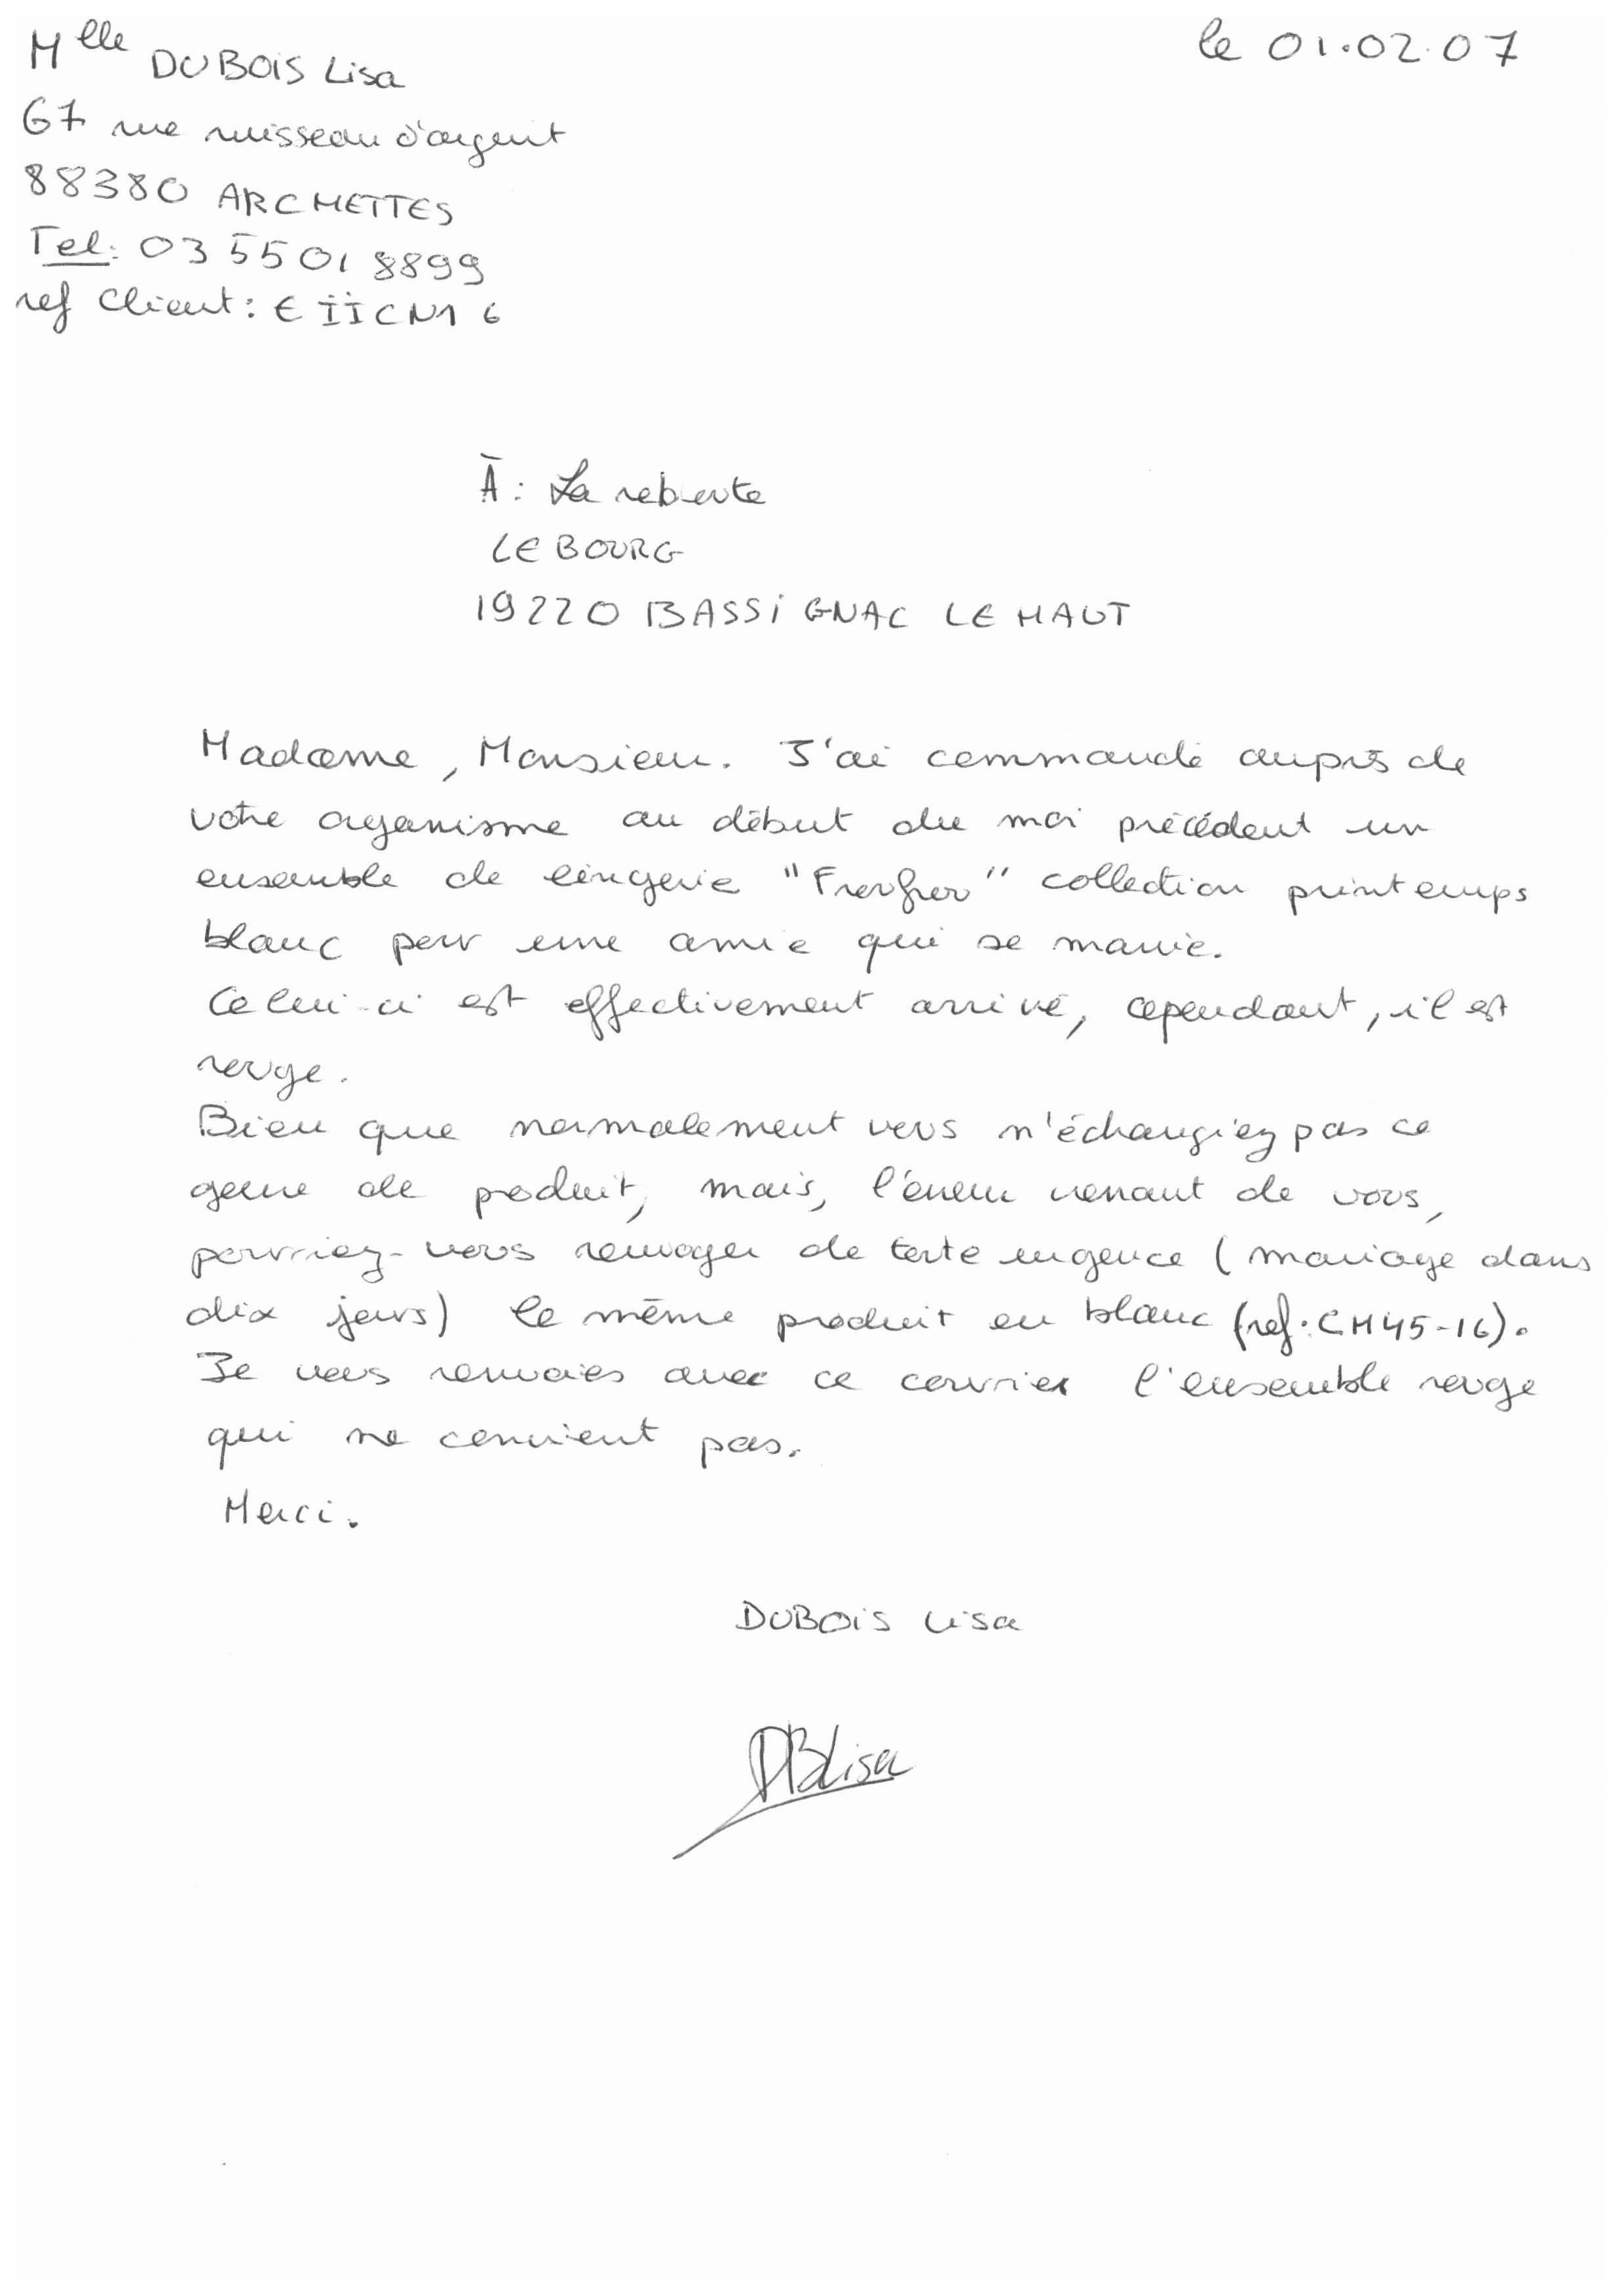 Mlle DUBOIS Lisa
le 01.02.07
67 rue ruisseau d'argent
88380 ARCHETTES
Tel: 03 55 01 8899
ref Client: EIICN16
À: La reboute
LE BOURG
19220 BASSIGNAC LE HAUT
Madame, Monsieur. J'ai commandé auprès de
votre organisme au début du moi précédent un
ensemble de lingerie "Froufrou" collection printemps
blanc pour une amie qui se marie.
Celui-ci est effectivement arrivé, cependant, il est
rouge.
Bien que normalement vous n'échangiez pas ce
genre de produit, mais, l'erreur venant de vous,
pourriez-vous renvoyer de toute urgence (mariage dans
dix jours) le même produit en blanc (ref: CH45-16).
Je vous renvoies avec ce courrier l'ensemble rouge
qui ne convient pas.
Merci.
DUBOIS Lisa
DBLisa